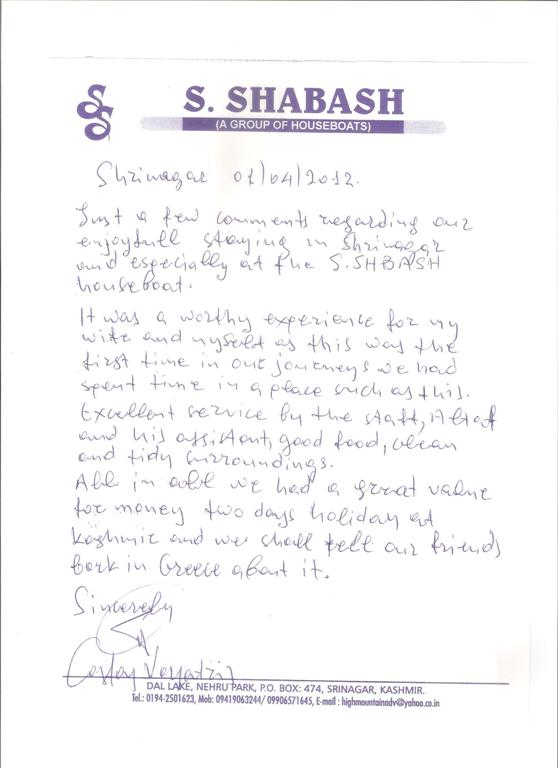 S. SHABASH
(A GROUP OF HOUSEBOATS)
Shrinagar 01/04/2012.
Just a few comments regarding our
enjoyfull staying in Shrinagar
and especially at the S.SHBASH
houseboat.
It was a worthy experience for my
wife and myself as this was the
first time in our journeys we had
spent time in a place such as this.
Excellent service by the staff, Altaf
and his assistant, good food, clean
and tidy surroundings.
All in all we had a great value
for money two days holiday at
Kashmir and we shall tell our friends
back in Greece about it.
Sincerely
DAL LAKE, NEHRU PARK, P.O. BOX: 474, SRINAGAR, KASHMIR.
Tel.: 0194-2501623, Mob: 09419063244/ 09906571645, E-mail : highmountainadv@yahoo.co.in